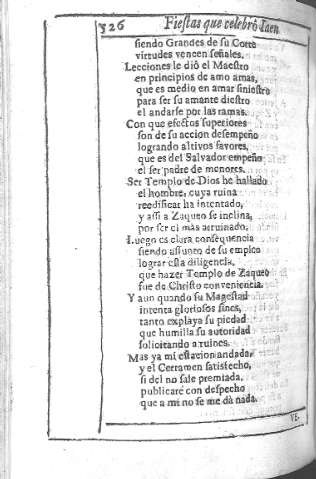 326 Fiestas que celebrò Iaen
siendo Grandes de su Corte
virtudes vencen señales.
Lecciones le diò el Maestro
en principios de amo amas,
que es medio en amar siniestro
para ser su amante diestro
el andarse por las ramas.
Con que efectos superiores
son de su accion desempeño
logrando altivos favores,
que es del Salvador empeño
el ser padre de menores.
Ser Templo de Dios he hallado
el hombre, cuya ruina
reedificar ha intentado,
y assi a Zaqueo se inclina,
por ser el mas arruinado.
Luego es clara consequencia
siendo assunto de su empleo
lograr esta diligencia,
que hazer Templo de Zaqueo
fue de Christo conveniencia.
Y aun quando su Magestad
intenta gloriosos fines,
tanto explaya su piedad
que humilla su autoridad
solicitando a ruines.
Mas ya mi estacion andada,
y el Certamen satisfecho,
si del no sale premiada,
publicarè con despecho
que a mi no se me dà nada.
VE-